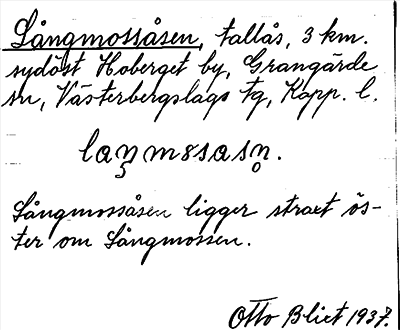 Långmossåsen, tallås, 3 km.
sydöst Hoberget by, Grangärde
sn, Västerbergslags tg, Kopp. l.
Långmossåsen ligger straxt ös-
ter om Långmossen.
Otto Blixt 1937.